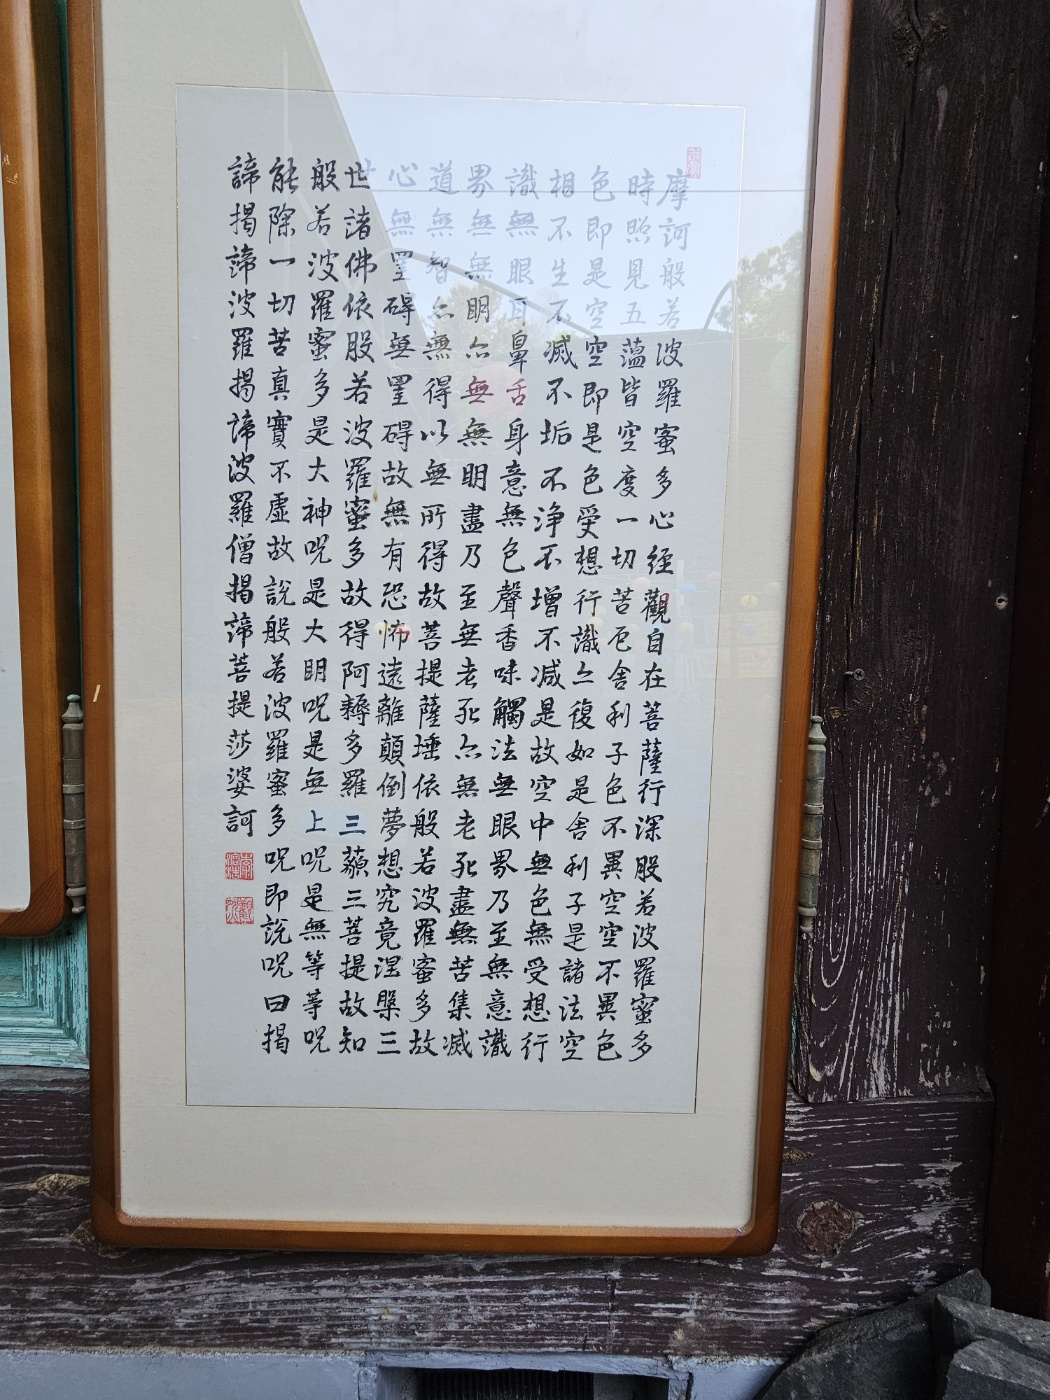 摩訶般若波羅蜜多心經觀自在菩薩行深般若波羅蜜多
時照見五蘊皆空度一切苦厄舍利子色不異空空不異色
色即是空空即是色受想行識亦復如是舍利子是諸法空
相不生不滅不垢不淨不增不減是故空中無色無受想行
識無眼耳鼻舌身意無色聲香味觸法無眼界乃至無意識
界無無明亦無無明盡乃至無老死亦無老死盡無苦集滅
道無智亦無得以無所得故菩提薩埵依般若波羅蜜多故
心無罣碍無罣碍故無有恐怖遠離顛倒夢想究竟涅槃三
世諸佛依般若波羅蜜多故得阿耨多羅三藐三菩提故知
般若波羅蜜多是大神呪是大明呪是無上呪是無等等呪
能除一切苦真實不虛故說般若波羅蜜多呪即說呪曰揭
諦揭諦波羅揭諦波羅僧揭諦菩提莎婆訶